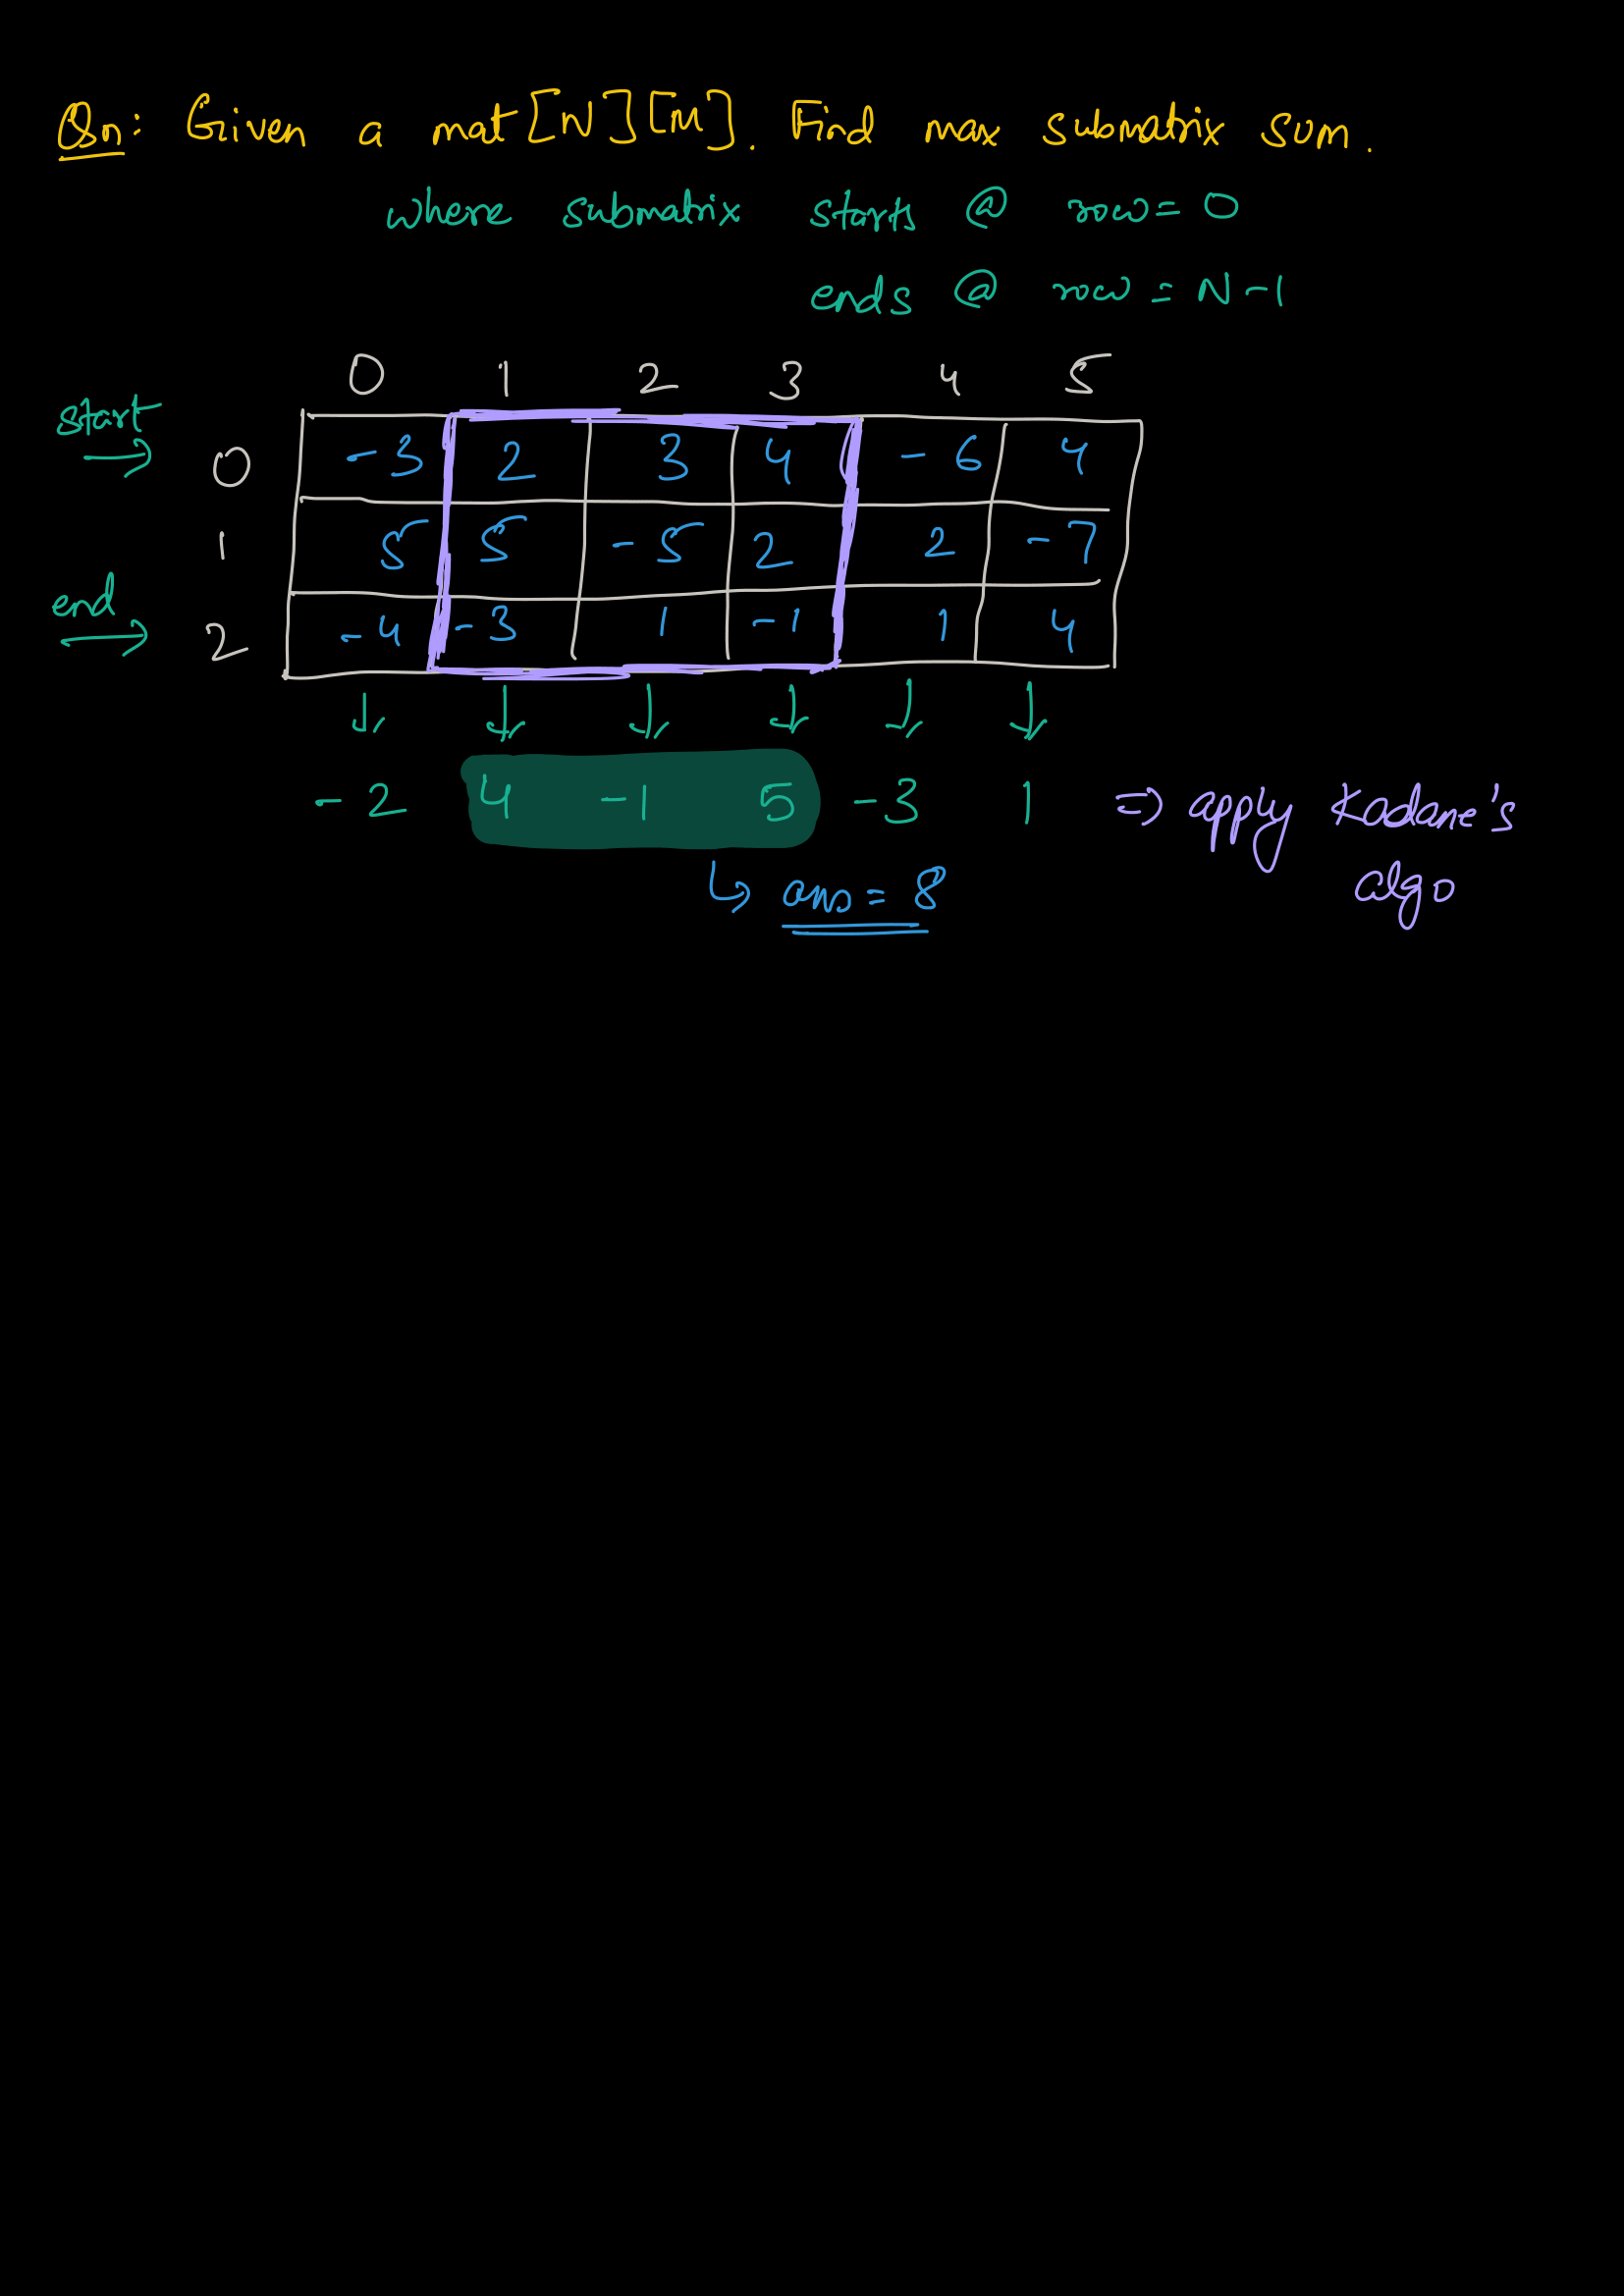 Qn: Given a mat[N][M]. Find max submatrix sum.
where submatrix starts @ row = 0
ends @ row = N-1
0 1 2 3 4 5
start
0 -3 2 3 4 -6 4
1 5 5 -5 2 2 -7
end
2 -4 -3 1 -1 1 4
↓ ↓ ↓ ↓ ↓ ↓
-2 4 -1 5 -3 1 => apply Kadane's
algo
↳ ans = 8